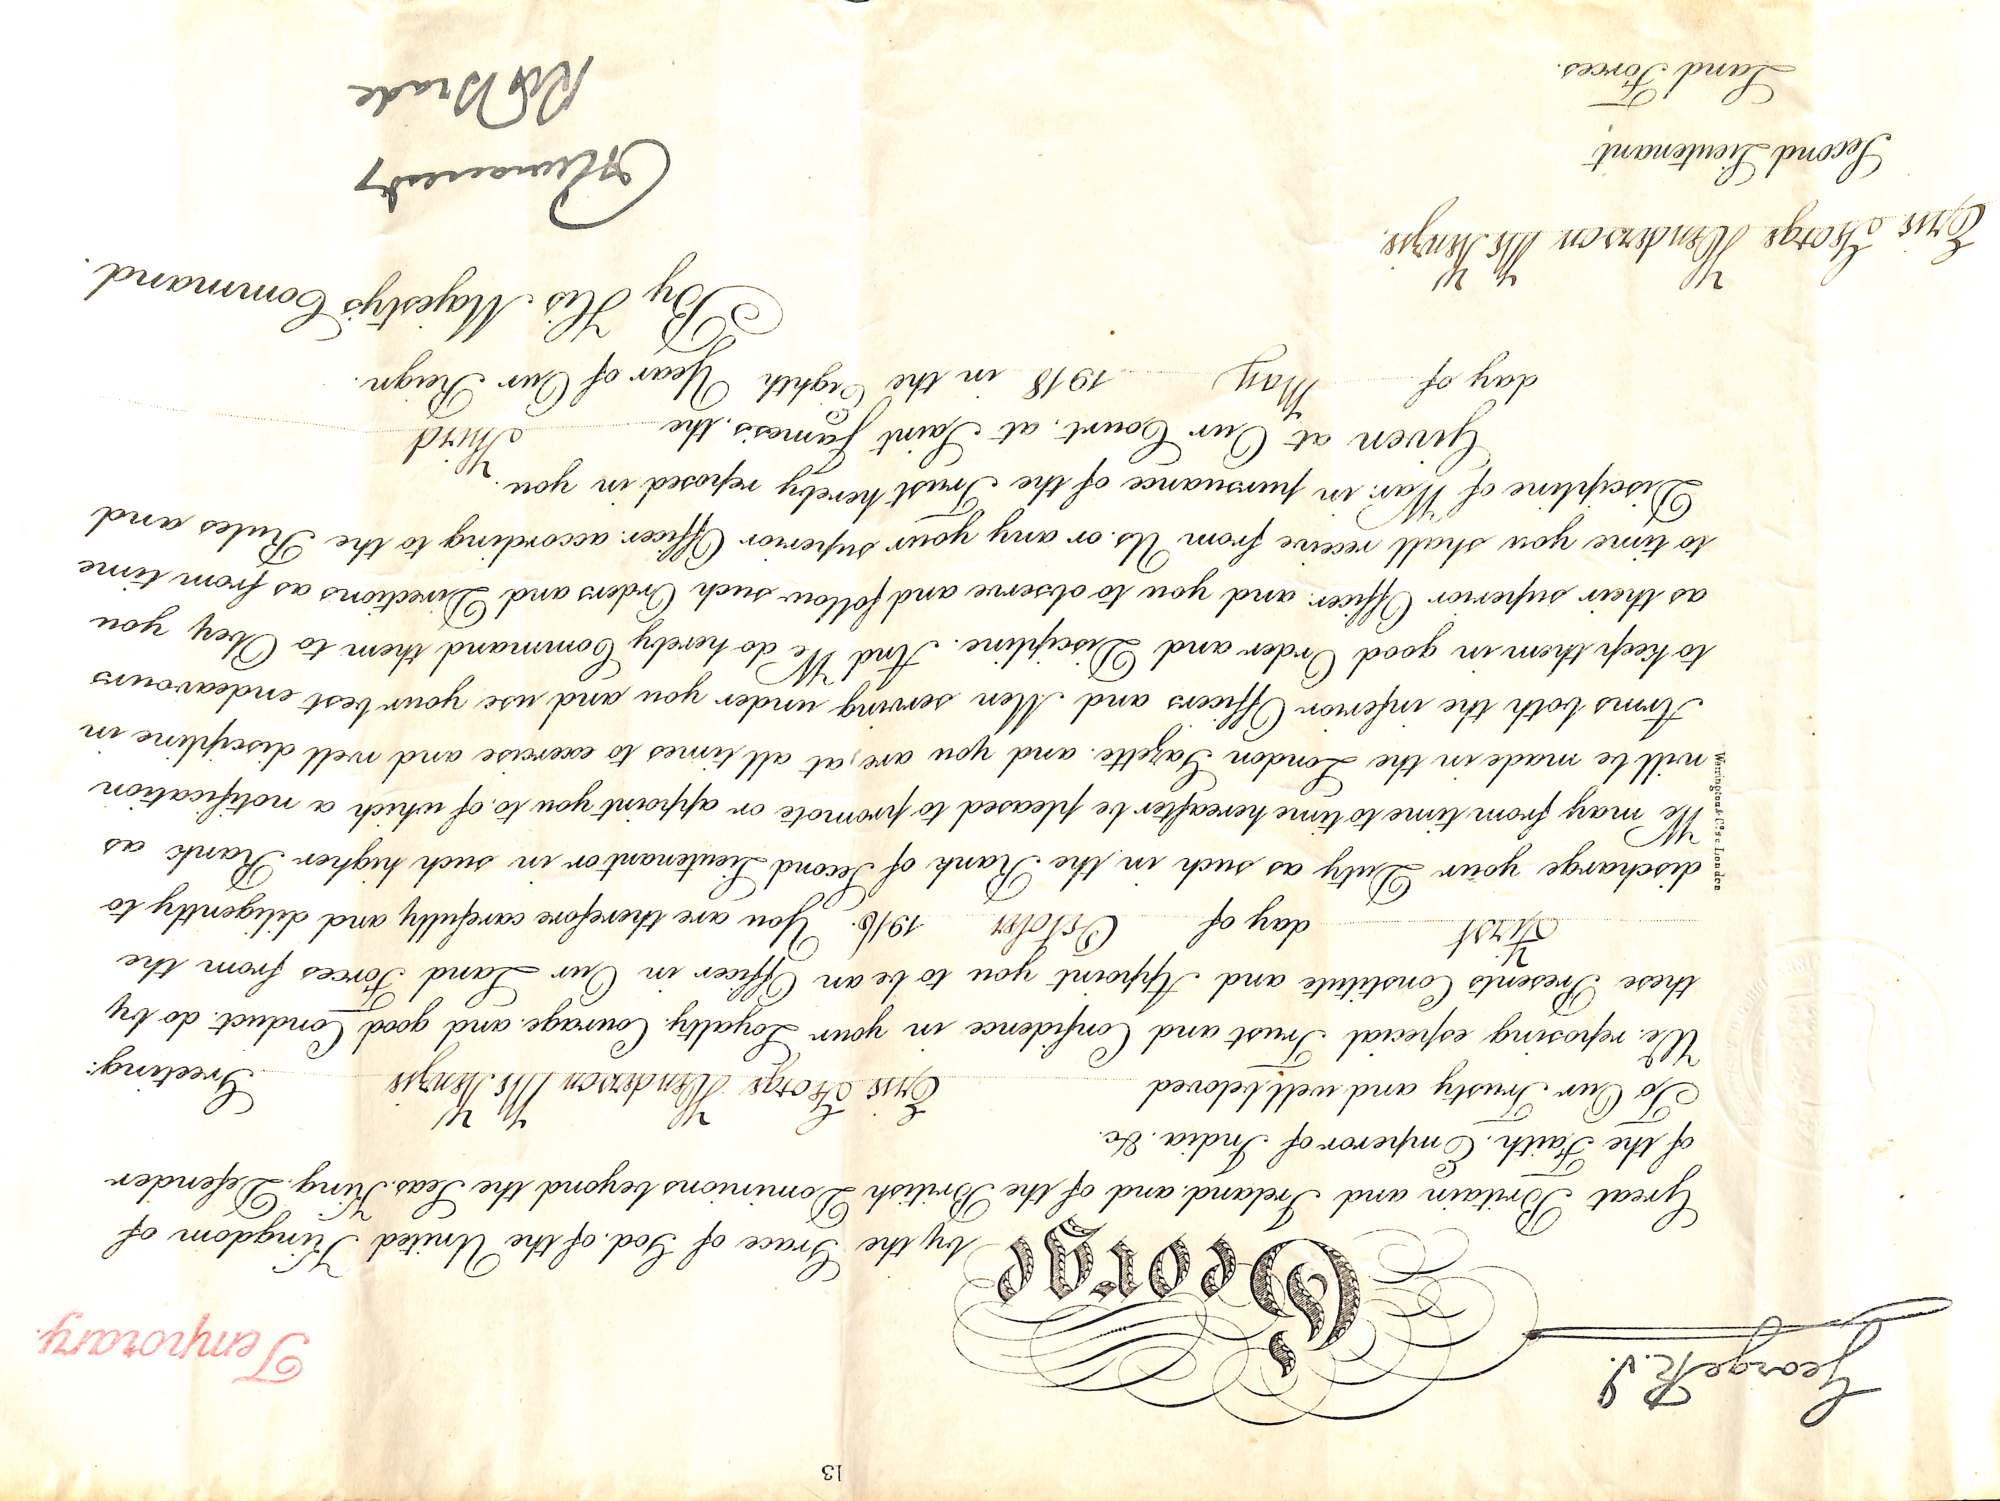 13
George R.I.
Temporary.
George by the Grace of God, of the United Kingdom of
Great Britain and Ireland, and of the British Dominions beyond the Seas, King, Defender
of the Faith, Emperor of India, &c.
To Our Trusty and well beloved Eric George Henderson McKenzie Greeting:
We, reposing especial Trust and Confidence in your Loyalty, Courage, and good Conduct, do by
these Presents Constitute and Appoint you to be an Officer in Our Land Forces from the
First day of October 1916. You are therefore carefully and diligently to
discharge your Duty as such in the Rank of Second Lieutenant or in such higher Rank as
We may from time to time hereafter be pleased to promote or appoint you to, of which a notification
will be made in the London Gazette, and you are, at all times to exercise and well discipline in
Arms both the inferior Officers and Men serving under you and use your best endeavours
to keep them in good Order and Discipline. And We do hereby Command them to Obey you
as their superior Officer, and you to observe and follow such Orders and Directions as from time
to time you shall receive from Us, or any your superior Officer, according to the Rules and
Discipline of War, in pursuance of the Trust hereby reposed in you.
Given at Our Court, at Saint James's, the Third
day of May 1918 in the Eighth Year of Our Reign.
By His Majesty's Command.
Eric George Henderson McKenzie.
Second Lieutenant,
Land Forces.
RH Brade
Warrington & Co. sc London